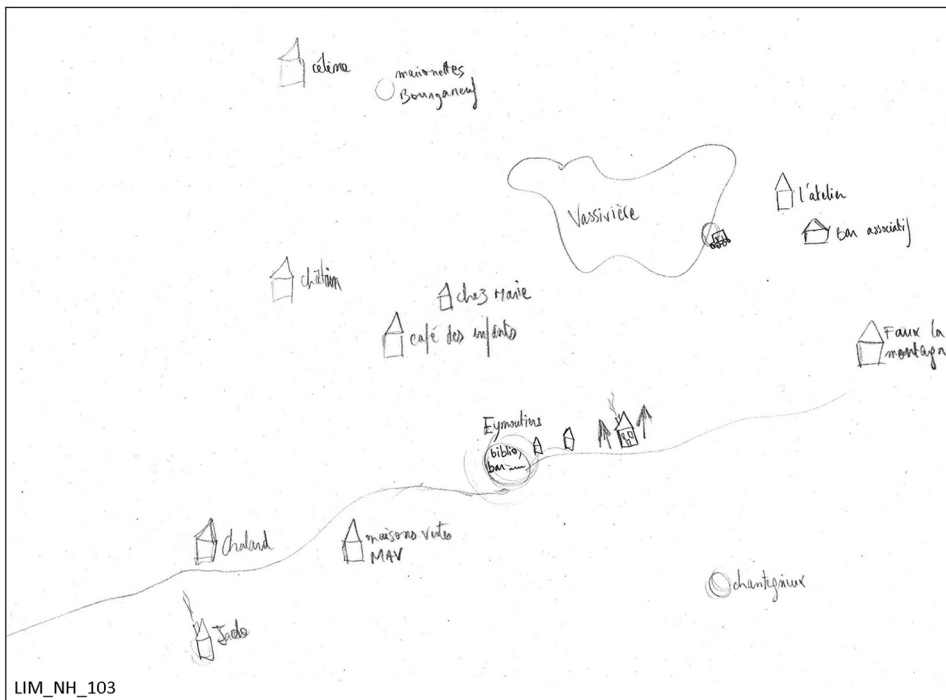 céline
marionnettes
Bourganeuf
Vassivière
l'atelier
bar associatif
châtain
chez Marie
café des enfants
Faux la
montagn
Eymoutiers
biblio,
bar
chaland
maisons vertes
MAV
Jado
LIM_NH_103